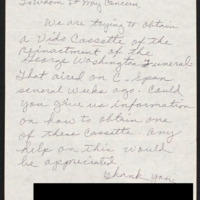 To Whom It May Concern
We are trying to obtain
a Vido Cassette of the
Reinactment of the
George Washington Funeral
That aired on C. Span
several weeks ago. Could
you give us information
on how to obtain one
of these Cassette. Any
help on this would
be appreciated
Thank you,